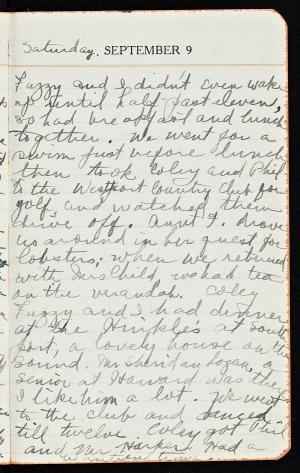 Saturday, SEPTEMBER 9
Fuzzy and I didn't even wake
up until half past eleven,
so had breakfast and lunch
together. We went for a
swim just before lunch
then took Coley and Phil
to the Westport Country Club for
golf and watched them
drive off. Aunt F. drove
us around in her quest for
lobsters; when we returned
with Mrs Child, we had tea
on the verandah. Coley
Fuzzy and I had dinner
at the Hinkles at South
port, a lovely house on the
Sound. Mr Sheridan Logan, a
senior at Harvard was there
I like him a lot. We went
to the club and danced
till twelve. Coley got Phil
and Mr. Harker. Had a